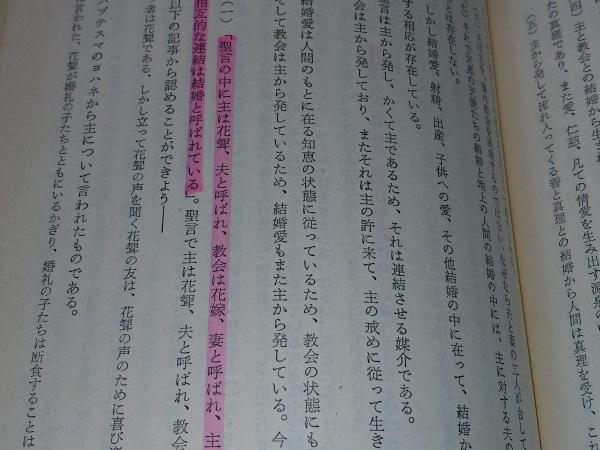 四）主と教会との結婚から生
たの真理であり、また愛、仁慈、凡ての情愛を生み出す源泉の
（五）主から発して流れ入ってくる善と真理との結婚から人間は真理を受け、これ
なぜなら夫と妻の二人が合して
天使たちの結婚と地上の人間の結婚の中には、主に対する夫の
とは存在しない。
しかし結婚愛、射精、出産、子供への愛、その他結婚の中に在って、結婚か
する相応が存在している。
聖言は主から発し、かくて主であるため、それは連結させる媒介である。
会は主から発しており、またそれは主の許に来て、主の戒めに従って生き
結婚愛は人間のもとに在る知恵の状態に従っているため、教会の状態にも
そして教会は主から発しているため、結婚愛もまた主から発している。今
（一）「聖言の中に主は花聟、夫と呼ばれ、教会は花嫁、妻と呼ばれ、主
相互的な連結は結婚と呼ばれている」。聖言で主は花聟、夫と呼ばれ、教会
以下の記事から認めることができよう――
者は花聟である、しかし立って花聟の声を聞く花聟の友は、花聟の声のために喜び
バプテスマのヨハネから主について言われたものである。
言われた、花聟が婚礼の子たちとともにいるかぎり、婚礼の子たちは断食することは